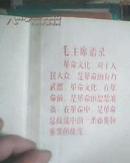 毛主席语录
革命文化，对于人
民大众，是革命的有力
武器。革命文化，在革
命前，是革命的思想准
备；在革命中，是革命
总战线中的一条必要和
重要的战线。